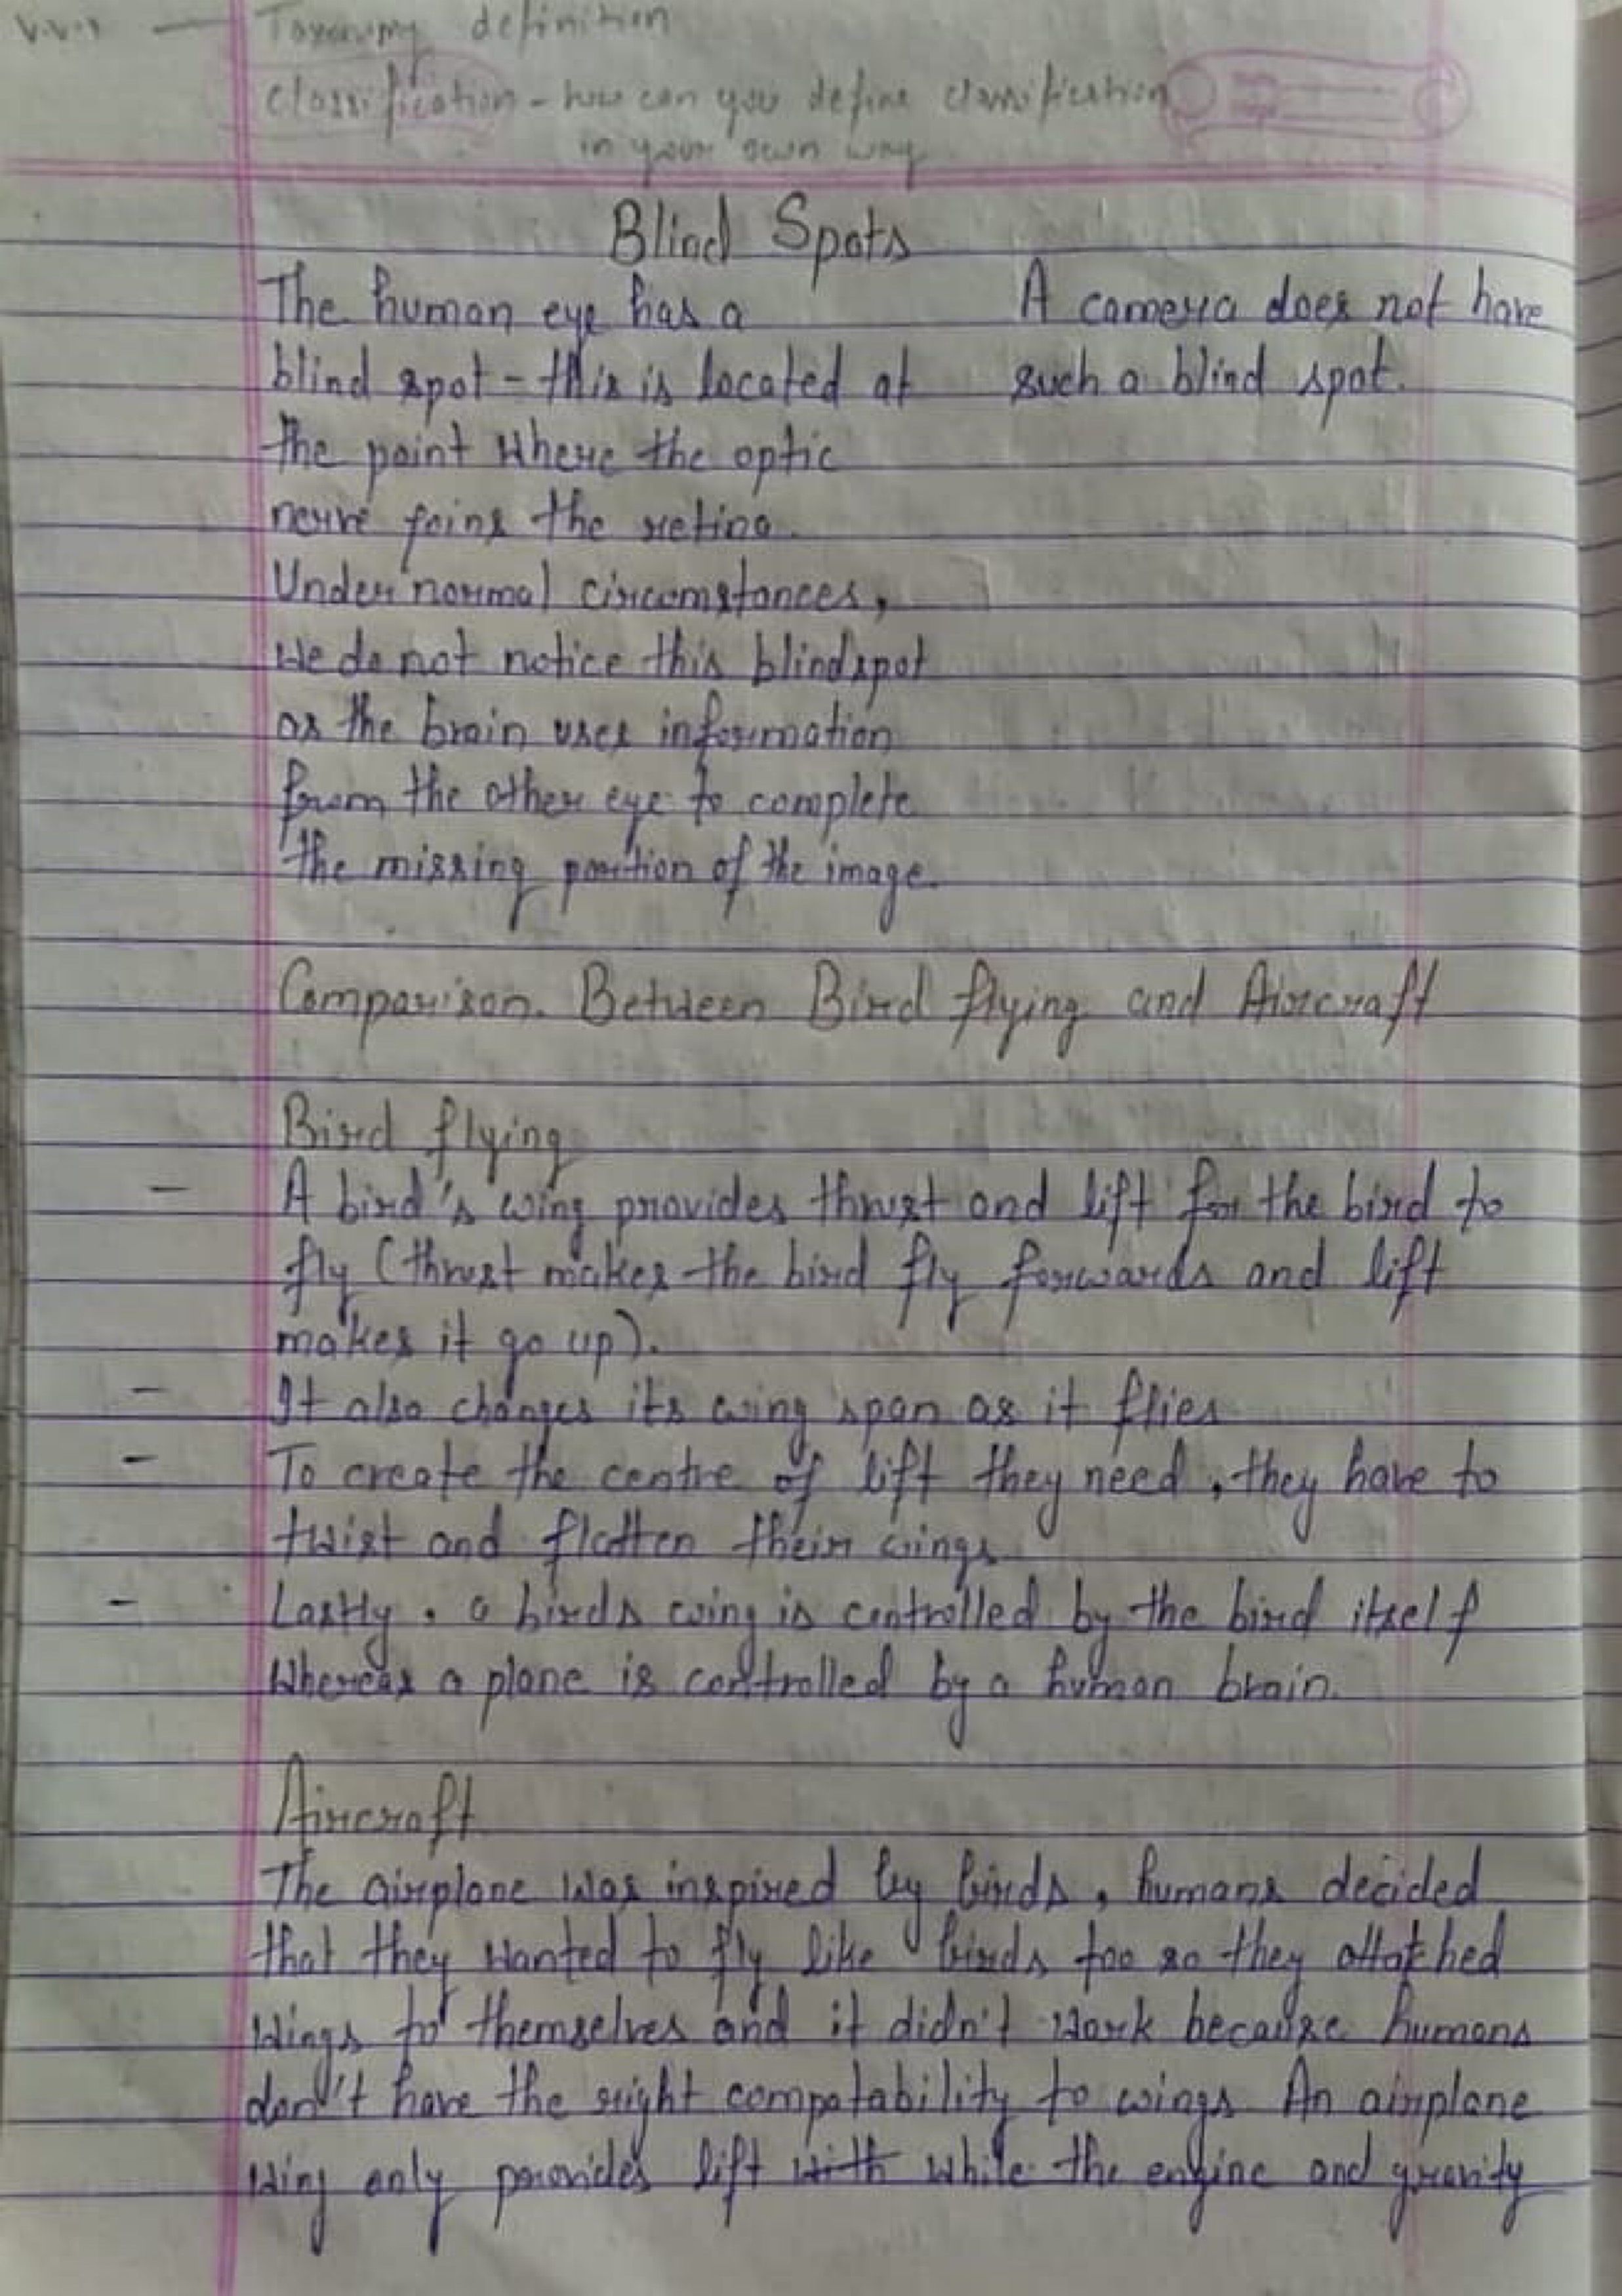 v.v.i — Taxonomy definition
classification - how can you define classification
in your own way
Blind Spots
The human eye has a
blind spot - this is located at
the point where the optic
nerve joins the retina.
Under normal circumstances,
we do not notice this blindspot
as the brain uses information
from the other eye to complete
the missing portion of the image.
A camera does not have
such a blind spot.
Comparison Between Bird flying and Aircraft
Bird flying
- A bird's wing provides thrust and lift for the bird to
fly (thrust makes the bird fly forwards and lift
makes it go up).
- It also changes its wing span as it flies
- To create the centre of lift they need, they have to
twist and flatten their wings
- Lastly, a birds wing is controlled by the bird itself
whereas a plane is controlled by a human brain.
Aircraft
The airplane was inspired by birds, humans decided
that they wanted to fly like birds too so they attatched
wings to themselves and it didn't work because humans
don't have the right compatability to wings. An airplane
wing only provides lift with while the engine and gravity